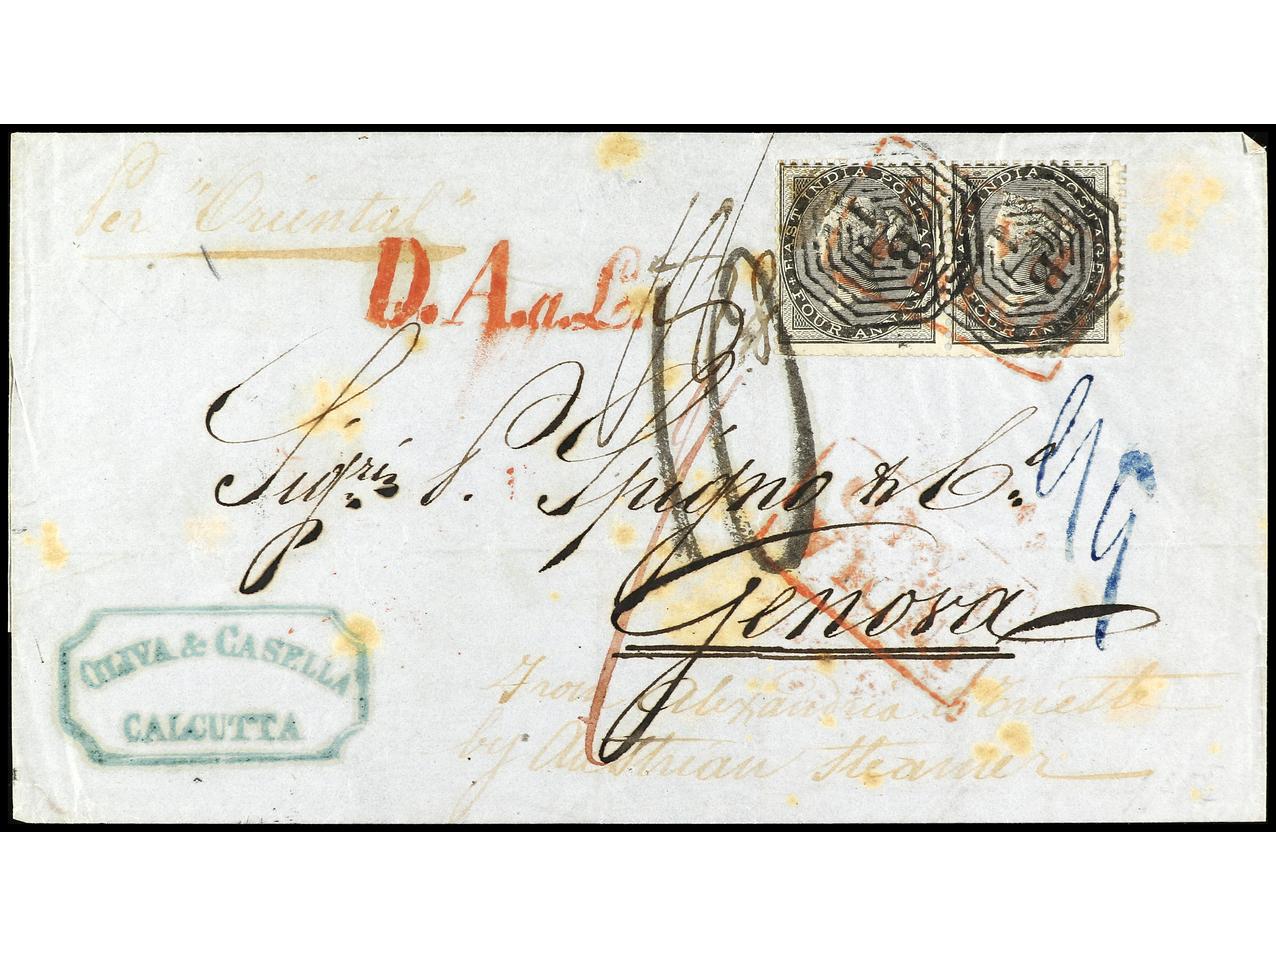 Per "Oriental"
D.A.a.L.
EAST INDIA POSTAGE
FOUR ANNAS
EAST INDIA POSTAGE
FOUR ANNAS
10
Sigri P. Spigno & Co.
Genova
99
OLIVA & CASELLA
CALCUTTA
From Alexandria to Trieste
by Austrian steamer